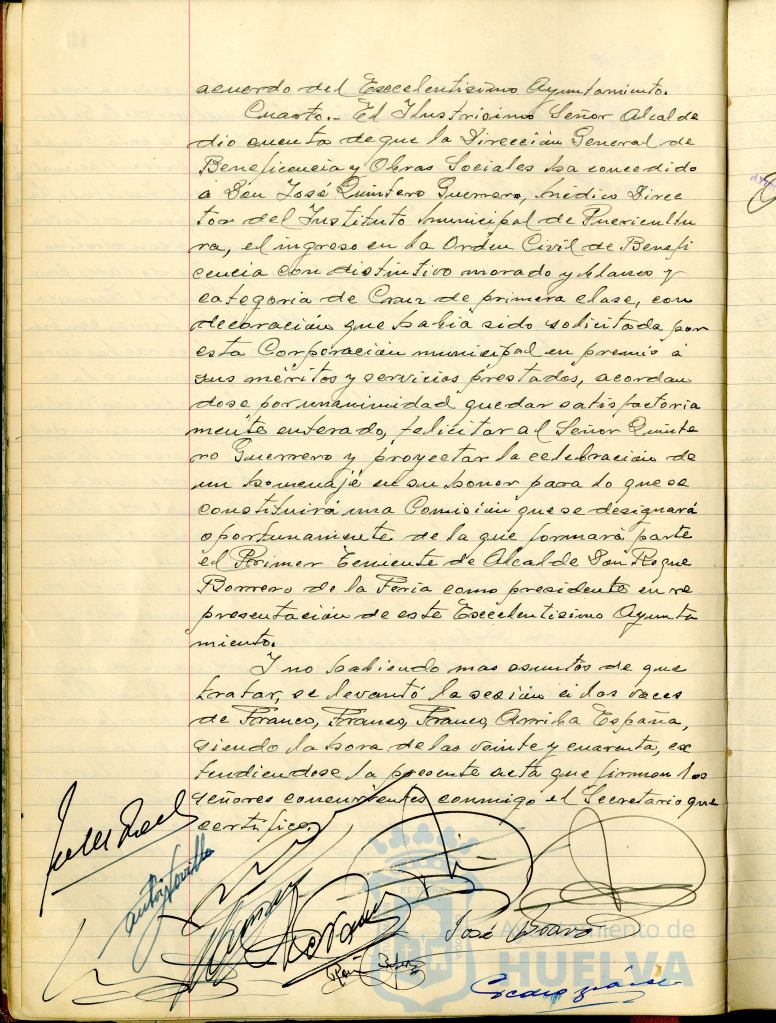 acuerdo del Excelentisimo Ayuntamiento.
Cuarto.- El Ilustrisimo Señor Alcalde
dio cuenta de que la Dirección General de
Beneficencia y Obras Sociales ha concedido
á Don José Quintero Guerrero, Médico Direc
tor del Instituto Municipal de Puericultu
ra, el ingreso en la Orden Civil de Benefi
cencia con distintivo morado y blanco y
categoria de Cruz de primera clase, con
decoración que habia sido solicitada por
esta Corporación municipal en premio á
sus méritos y servicios prestados, acordan
dose por unanimidad quedar satisfactoria
mente enterado, felicitar al Señor Quinte
ro Guerrero y proyectar la celebración de
un homenaje en su honor para lo que se
constituirá una Comisión que se designará
oportunamente de la que formará parte
el Primer Teniente de Alcalde Don Roque
Borrero de la Feria como presidente en re
presentación de este Excelentisimo Ayunta
miento.
Y no habiendo mas asuntos de que
tratar, se levantó la sesión á las voces
de Franco, Franco, Franco, Arriba España,
siendo la hora de las veinte y cuarenta, ex
tendiendose la presente acta que firman los
señores concurrentes conmigo el Secretario que
certifico.
José
Ayuntamiento de
HUELVA